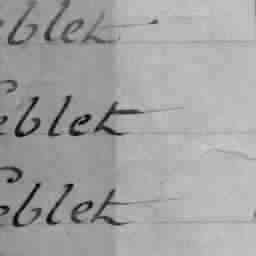 eblet
eblet
eblet